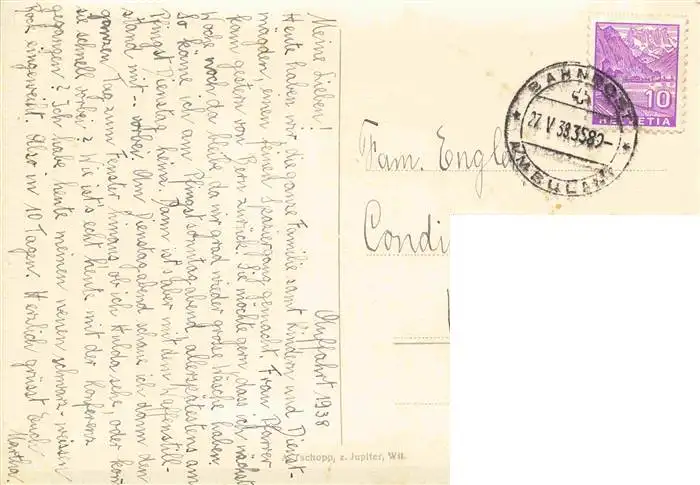 Auffahrt 1938
Meine Lieben!
Heute haben wir, die ganze Familie samt Kindern und Dienst-
mägden, einen feinen Spaziergang gemacht. Frau Pfarrer
kam gestern von Bern zurück. Sie möchte gern, dass ich nächste
Woche noch da bleibe, da wir grad wieder grosse Wäsche haben.
So käme ich am Pfingstsonntagabend, allerspätestens am
Pfingst Dienstag heim. Dann ist's aber mit dem Waffenstill-
stand mit - vorbei. Am Dienstagabend schaue ich dann den
ganzen Tag zum Fenster hinaus, ob ich Hulda sehe, oder kommt
sie schnell vorbei? Wie ist's echt heute mit der Konferenz
gegangen? Ich habe heute meinen neuen schwarz-weissen
Rock eingeweiht. Also in 10 Tagen. Herzlich grüsst Euch
Martha.
Fam. Engl
Condi
BAHNPOST
27. V 38. 3589-
AMBULANT
10
HELVETIA
Tschopp, z. Jupiter, Wil.